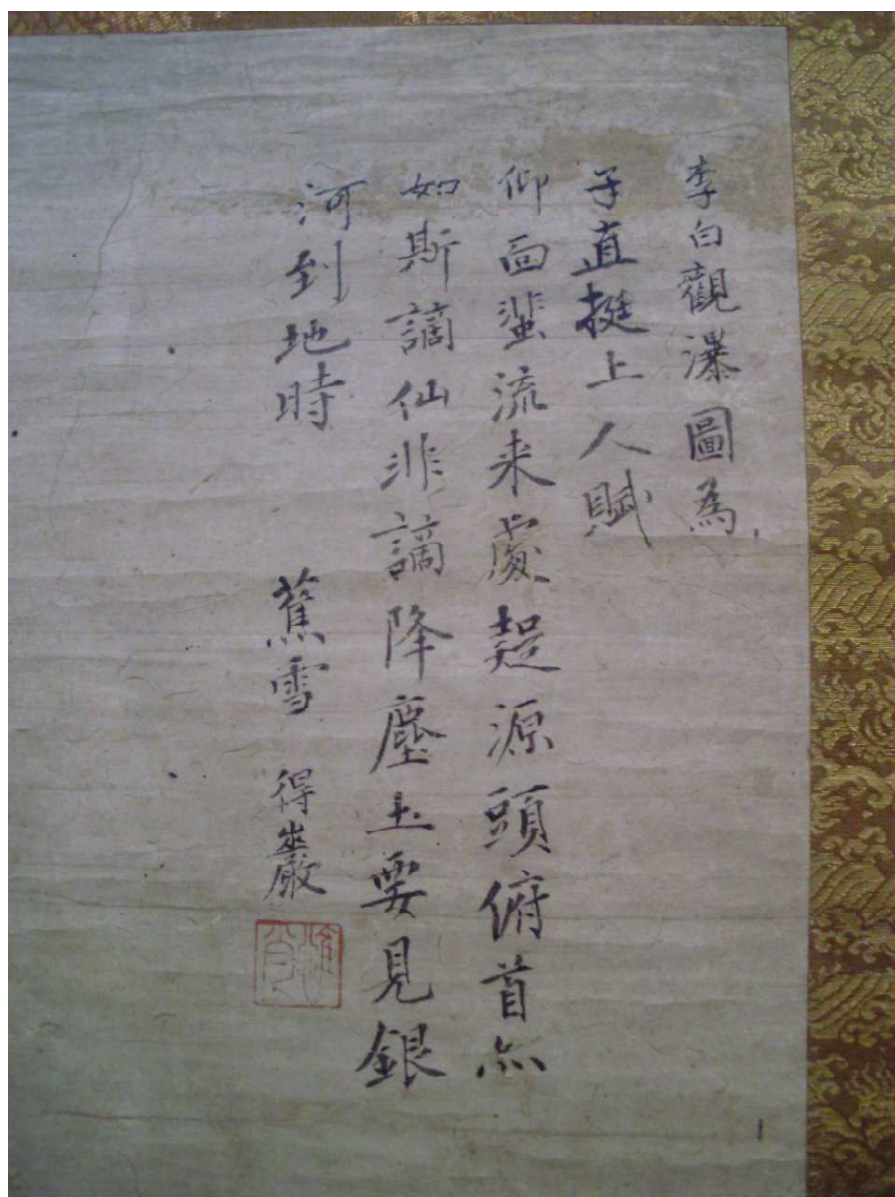 李白觀瀑圖為
子直挺上人賦
仰面蜚流来處疑源頭俯首亦
如斯謫仙非謫降塵土要見銀
河到地時
蕉雪 得巖
惟肖